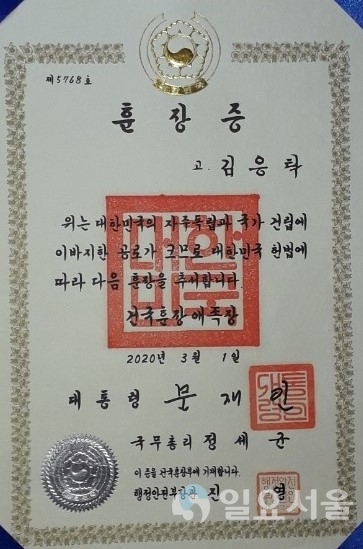 제5768호
훈장증
고. 김응탁
위는 대한민국의 자주독립과 국가 건립에
이바지한 공로가 크므로 대한민국 헌법에
따라 다음 훈장을 추서합니다.
건국훈장 애족장
2020년 3월 1일
대통령 문재인
국무총리 정세균
이 증을 건국훈장부에 기재합니다.
행정안전부장관 진영
일요서울